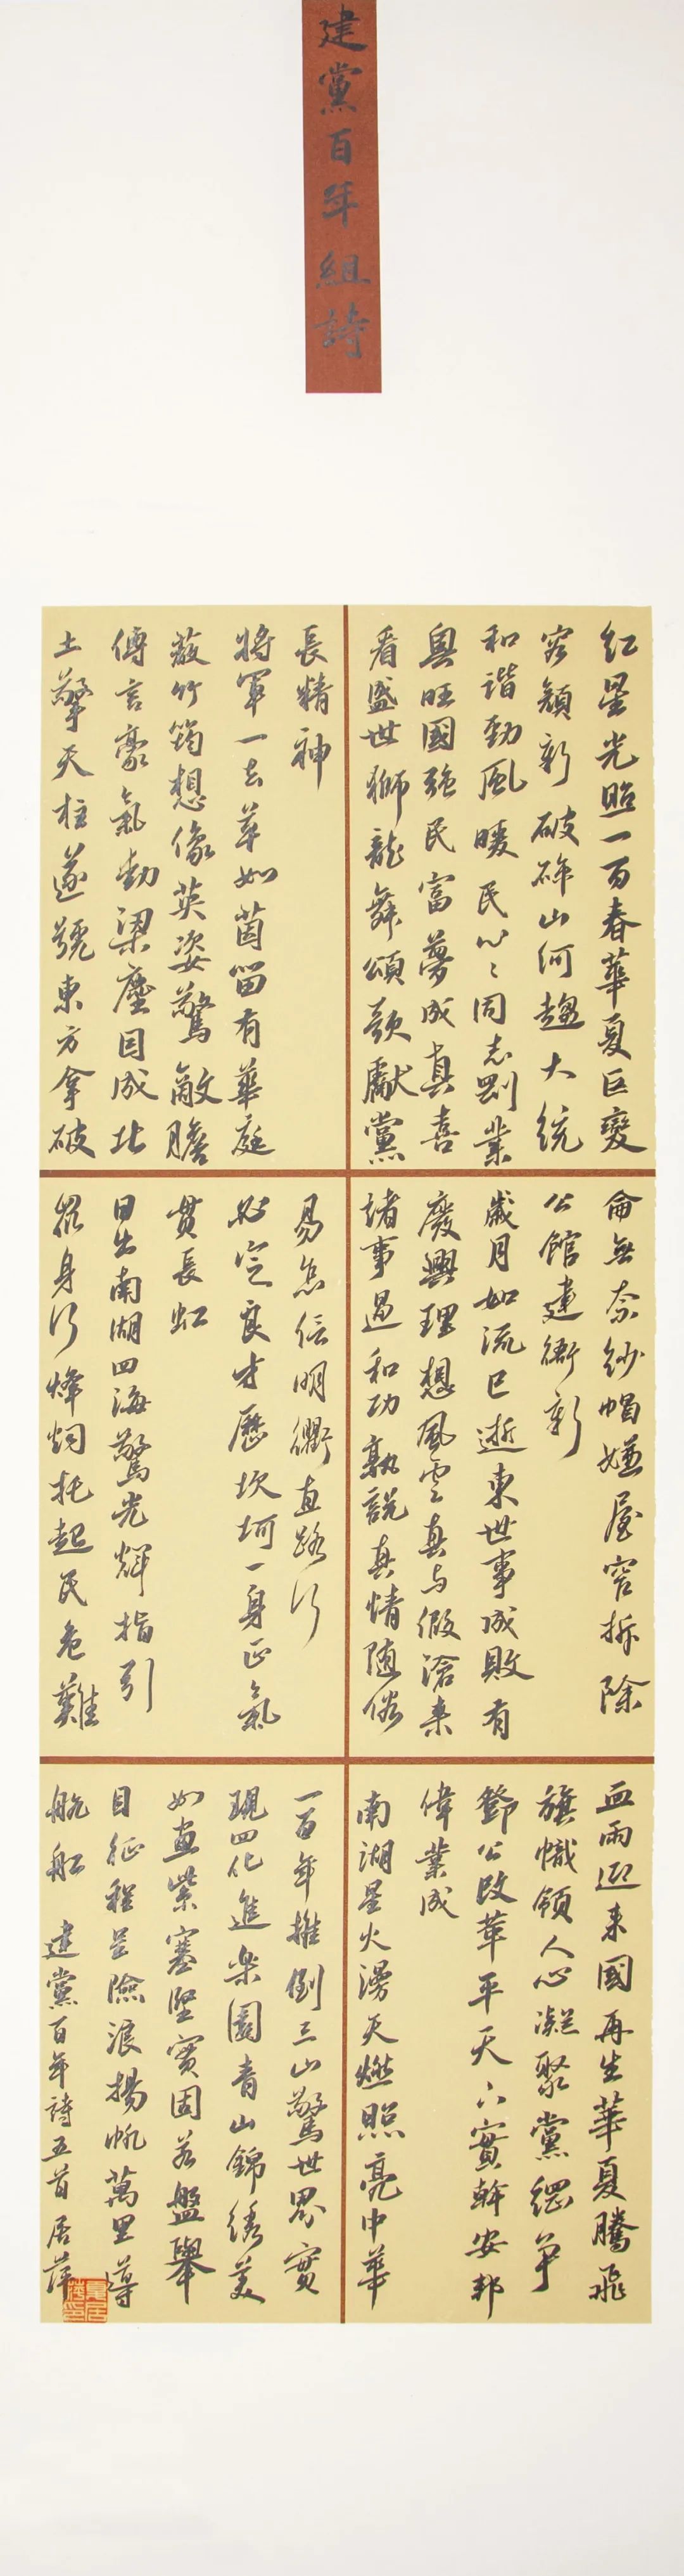 建黨百年組詩
紅星光照一百春華夏巨變
容顏新破碎山河趨大統
和諧勁風暖民心々同志剛業
興旺國強民富夢成真喜
看盛世獅龍舞頌歌獻黨
長精神
將軍一去草如茵留有華庭
蔽竹筠想像英姿驚敵膽
傳言豪氣動梁塵自成北
土擎天柱遂號東方拿破
侖無奈紗帽嫌屋窄拆除
公館建衙新
歲月如流已逝東世事成敗有
廢興理想風雲真与假滄桑
諸事過和功孰說真情隨俗
易怎信明衢直路行
必定良才歷坎坷一身正氣
貫長虹
日出南湖四海驚光輝指引
從身行烽炯托起民危難
血雨迎來國再生華夏騰飛
旗幟領人心凝聚黨綱爭
鄧公改革平天下實幹安邦
偉業成
南湖星火漫天燃照亮中華
一百年推倒三山驚世界實
現四化進樂園青山錦綉美
如畫紫塞堅實固若盤舉
目征程呈險浪揚帆萬里導
航船 建黨百年詩五首居萍